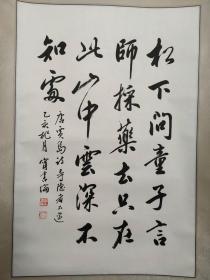 松下问童子言
師採藥去只在
此山中雲深不
知處
唐賈島诗寻隐者不遇
乙亥桃月